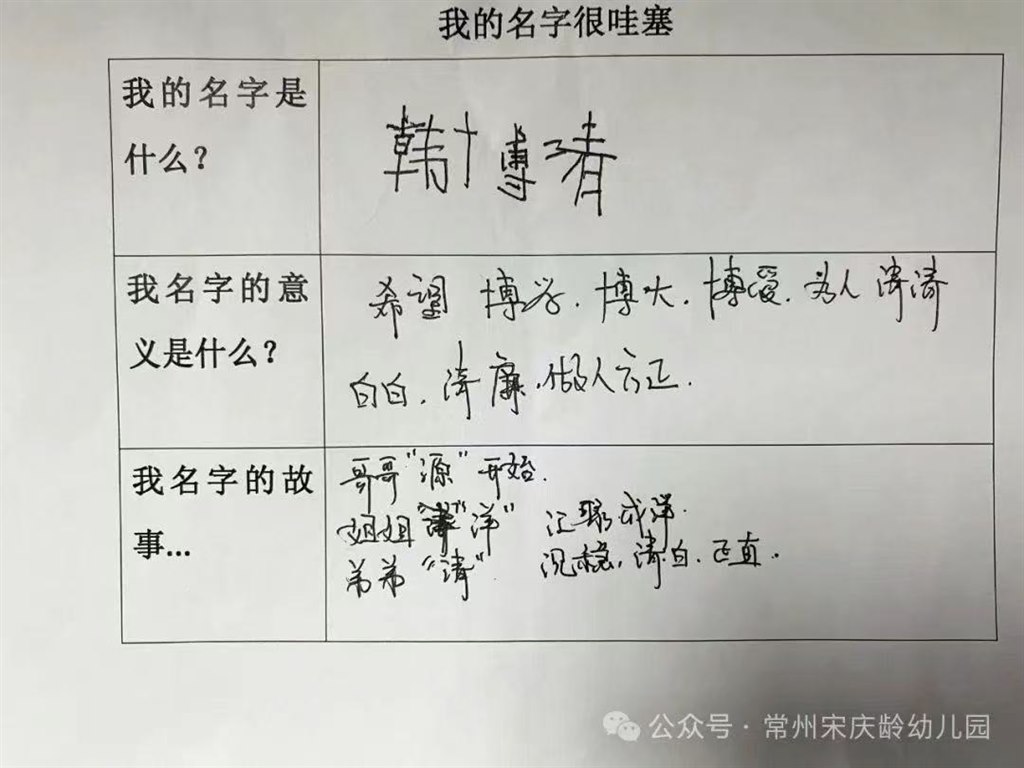 我的名字很哇塞
我的名字是
什么？
韩博清
我名字的意
义是什么？
希望 博学.博大.博爱.为人清清
白白.清廉.做人方正.
我名字的故
事...
哥哥"源"开始.
姐姐"洋" 汇聚成洋.
弟弟"清" 沉稳,清白.正直.
公众号·常州宋庆龄幼儿园